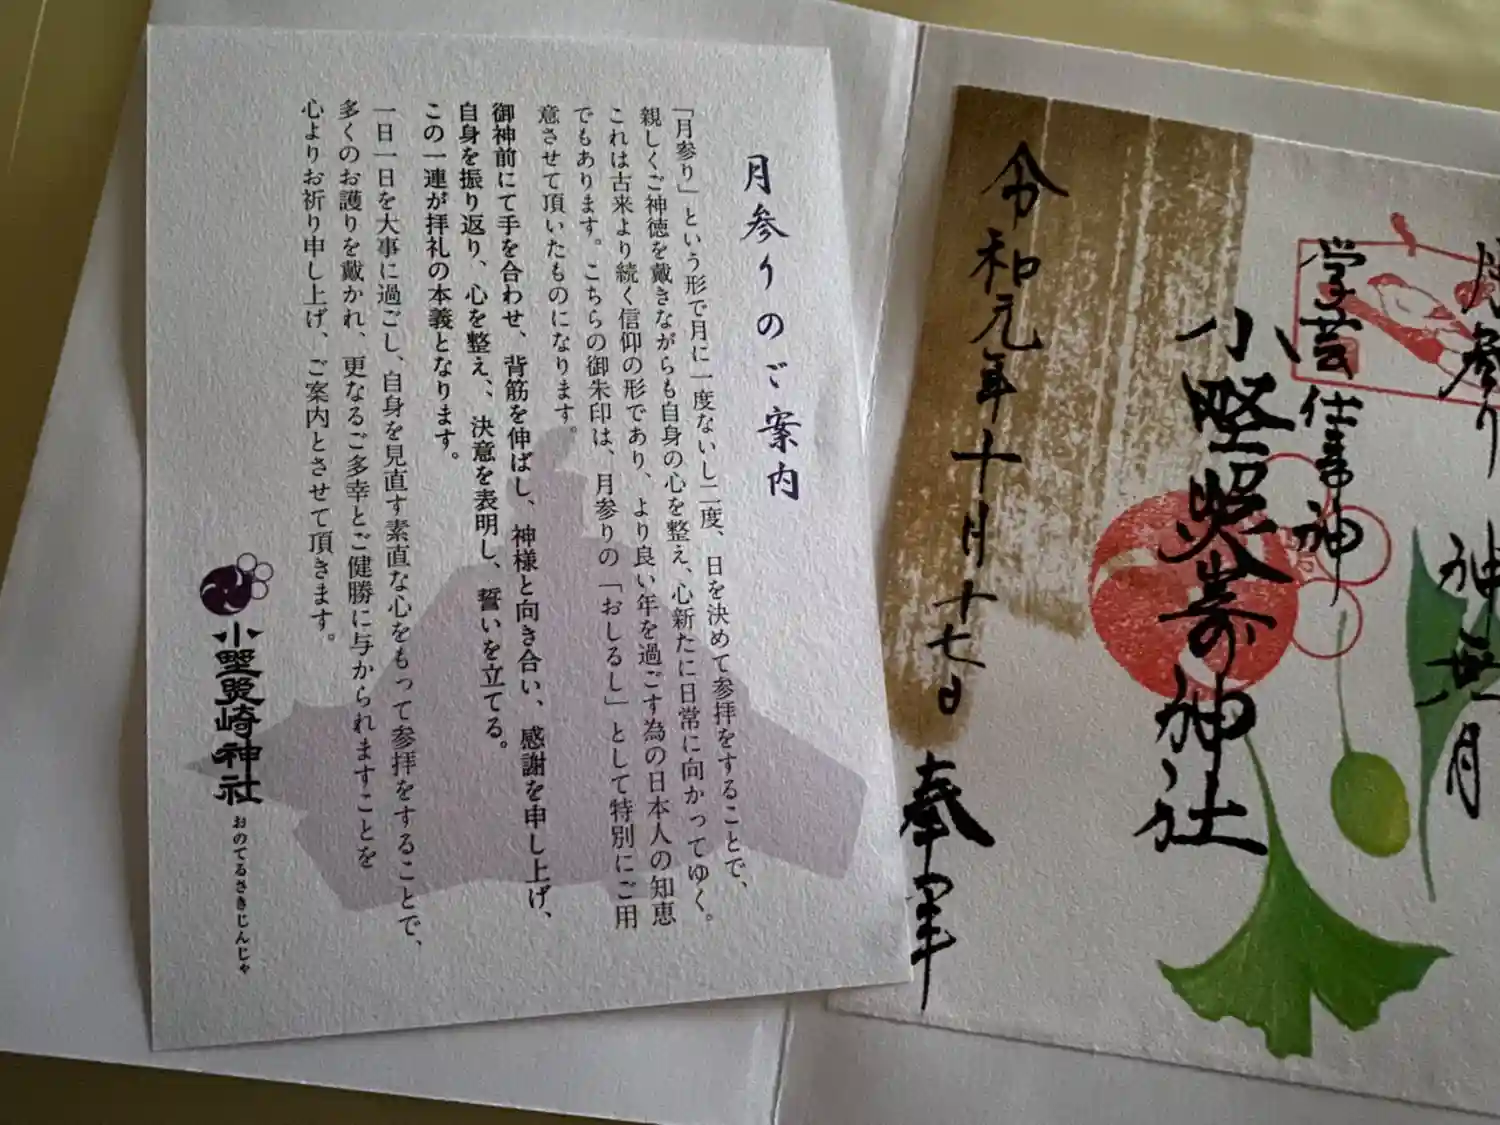 月参りのご案内
「月参り」という形で月に一度ないし二度、日を決めて参拝をすることで、
親しくご神徳を戴きながらも自身の心を整え、心新たに日常に向かってゆく。
これは古来より続く信仰の形であり、より良い年を過ごす為の日本人の知恵
でもあります。こちらの御朱印は、月参りの「おしるし」として特別にご用
意させて頂いたものになります。
御神前にて手を合わせ、背筋を伸ばし、神様と向き合い、感謝を申し上げ、
自身を振り返り、心を整え、、決意を表明し、誓いを立てる。
この一連が拝礼の本義となります。
一日一日を大事に過ごし、自身を見直す素直な心をもって参拝をすることで、
多くのお護りを戴かれ、更なるご多幸とご健勝に与かられますことを
心よりお祈り申し上げ、ご案内とさせて頂きます。
小野照崎神社
おのてるさきじんじゃ
月参り 神無月
学芸 仕事神
小野照崎神社
令和元年十月十七日
奉拝